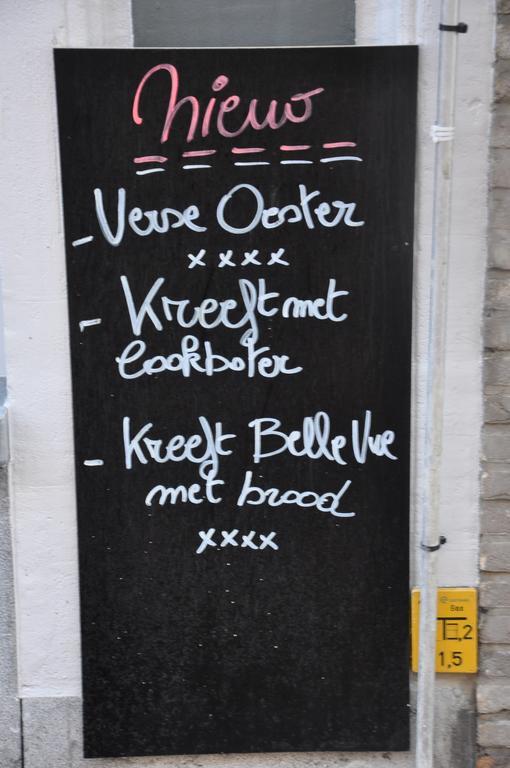 Nieuw
- Verse Oester
xxxx
- Kreeft met
lookboter
- Kreeft Belle Vue
met brood
xxxx
Gas
1,2
1,5